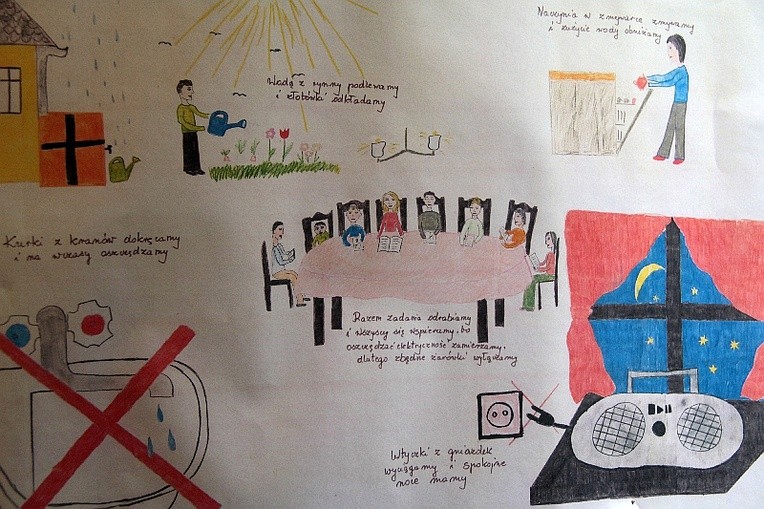 Naczynia w zmywarce zmywamy
i zużycie wody obniżamy
Wodą z rynny podlewamy
i złotówki odkładamy
Kurki z kranów dokręcamy
i na wczasy oszczędzamy
Razem zadania odrabiamy
i wszyscy się wspieramy, bo
oszczędzać elektryczność zamierzamy,
dlatego zbędne żarówki wyłączamy
Wtyczki z gniazdek
wyciągamy i spokojne
noce mamy